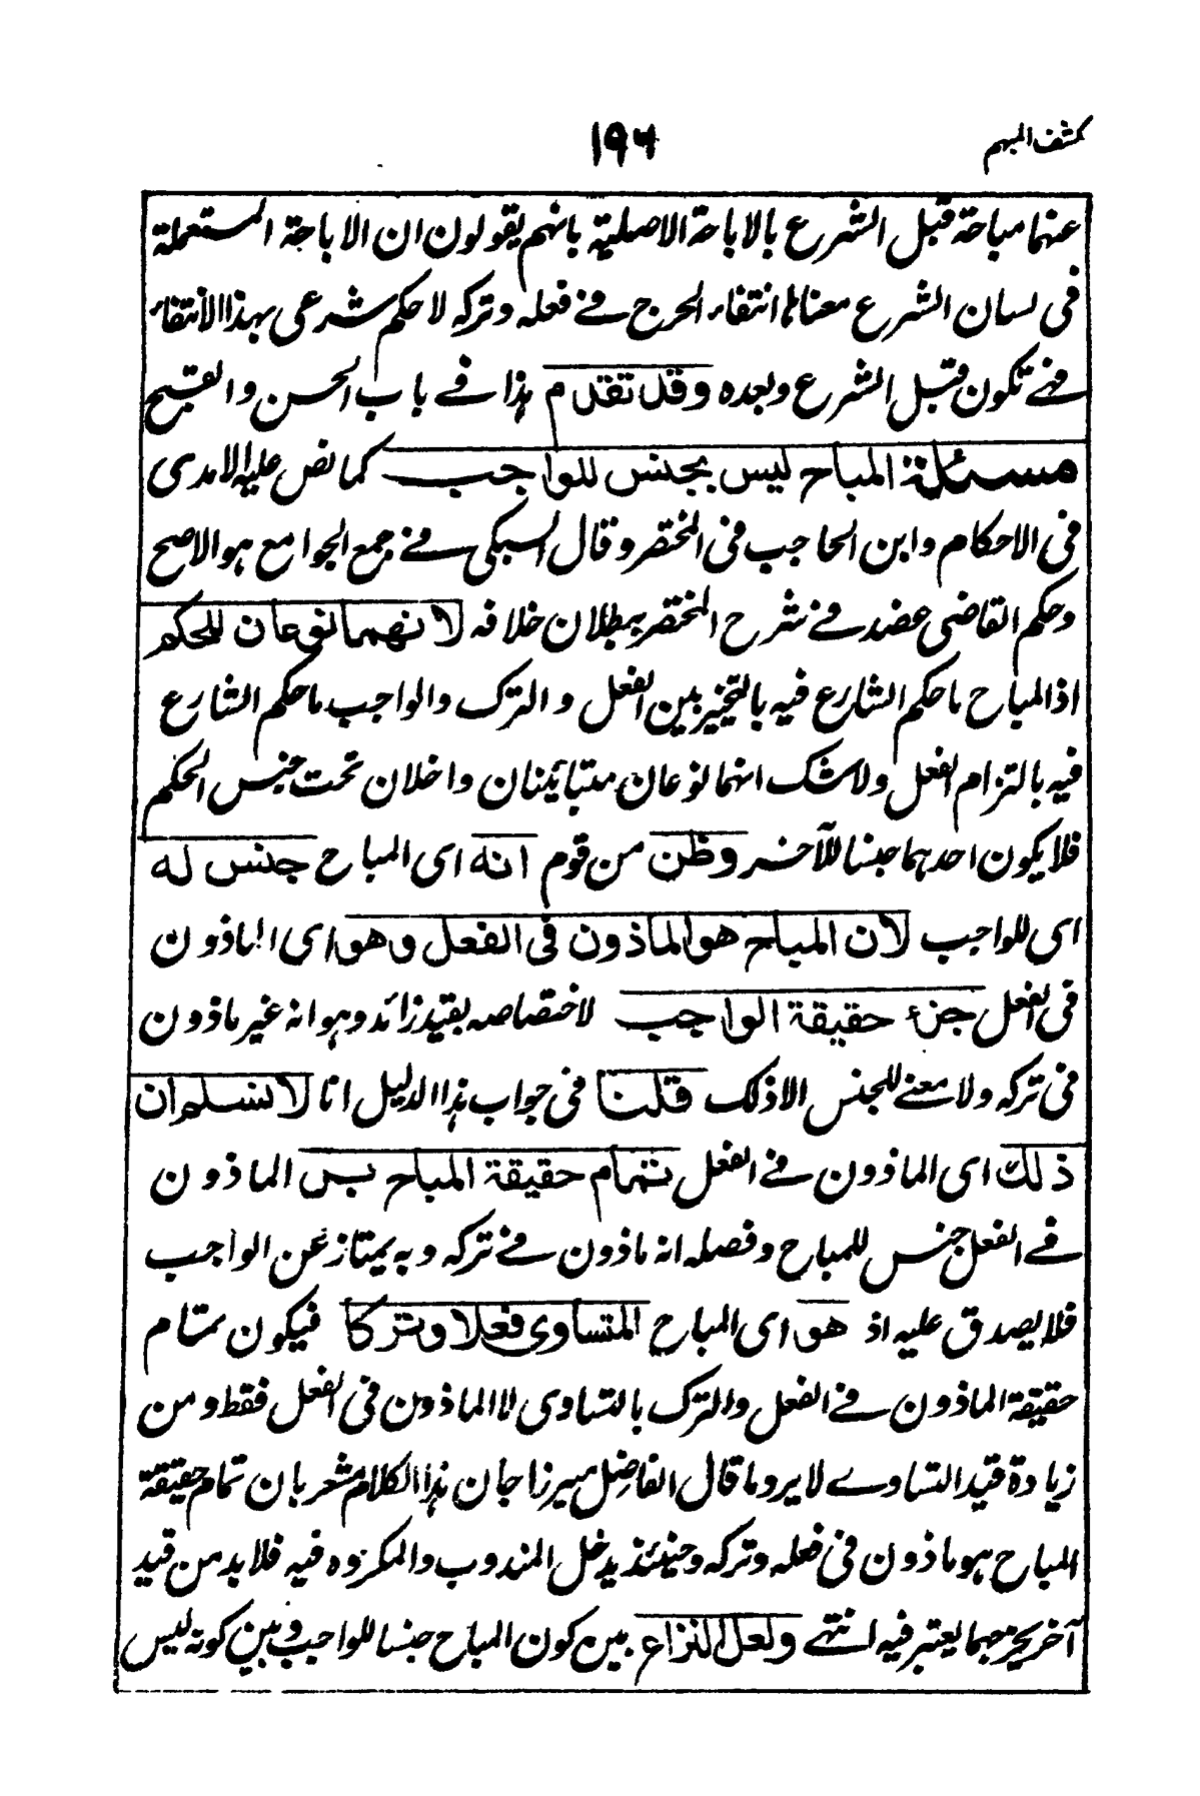 كشف المبهم
١٩٦
عنهما مباحة قبل الشرع بالاباحة الاصلية بانهم يقولون ان الاباحة المستعملة
فى لسان الشرع معناها انتفاء الحرج فى فعله وتركه لا حكم شرعى بهذا الانتفاء
فى تكون قبل الشرع وبعده وقد تقدم هذا فى باب الحسن والقبح
مسئلة المباح ليس بجنس للواجب كما نص عليه الامدى
فى الاحكام وابن الحاجب فى المختصر وقال السبكى فى جمع الجوامع هو الاصح
وحكم القاضى عضد فى شرح المختصر ببطلان خلافه لانهما نوعان للحكم
اذ المباح ما حكم الشارع فيه بالتخيير بين الفعل و الترك والواجب ما حكم الشارع
فيه بالتزام الفعل ولا شك انهما نوعان متبائنان داخلان تحت جنس الحكم
فلا يكون احدهما جنسا للآخر وظن من قوم انه اى المباح جنس له
اى للواجب لان المباح هو الماذون فى الفعل وهو اى الماذون
فى الفعل جزء حقيقة الواجب لاختصاصه بقيد زائد وهو انه غير ماذون
فى تركه ولا معنى للجنس الا ذلك قلنا فى جواب هذا الدليل انا لا نسلم ان
ذلك اى الماذون فى الفعل تمام حقيقة المباح بس الماذون
فى الفعل جنس للمباح وفصله انه ماذون فى تركه وبه يمتاز عن الواجب
فلا يصدق عليه اذ هو اى المباح المتساوى فعلا وتركا فيكون تمام
حقيقة الماذون فى الفعل والترك بالتساوى لا الماذون فى الفعل فقط ومن
زيادة قيد التساوى لا يرد ما قال الفاضل ميرزا جان هذا الكلام مشعر بان تمام حقيقة
المباح هو ماذون فى فعله وتركه وحينئذ يدخل المندوب والمكروه فيه فلا بد من قيد
آخر يخرجهما يعتبر فيه انتهى ولعل النزاع بين كون المباح جنسا للواجب وبين كونه ليس